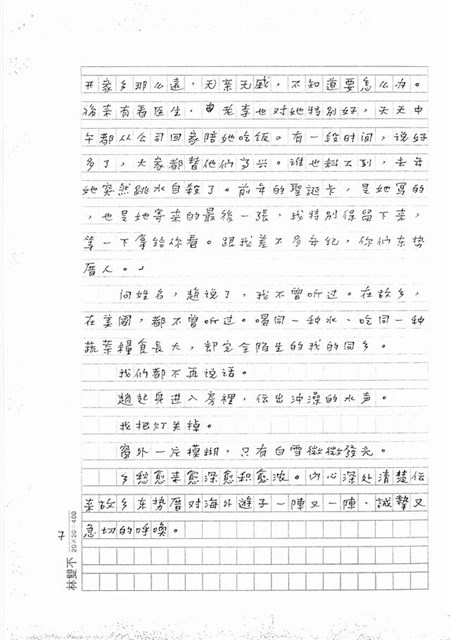 开家乡那么遠，无亲无戚，不知道要怎么办。
後来有看医生，老李也对她特别好，天天中
午都从公司回家陪她吃饭。有一段时间，说好
多了，大家都替他们高兴。谁也料不到，去年
她突然跳水自殺了。前年的聖誕卡，是她寫的
，也是她寄来的最後一張，我特别保留下来，
等一下拿给你看。跟我差不多年纪，你们东势
厝人。」
问姓名，趙说了，我不曾听过。在故乡，
在美國，都不曾听过。喝同一种水、吃同一种
蔬菜糧食長大，却完全陌生的我的同乡。
我们都不再说话。
趙起身進入房裡，伝出沖澡的水声。
我把灯关掉。
窗外一片模糊，只有白雪微微發亮。
乡愁愈来愈深愈积愈浓。内心深处清楚伝
来故乡东势厝对海外遊子一陣又一陣、誠摯又
急切的呼喚。
7
20×20=400
林雙不